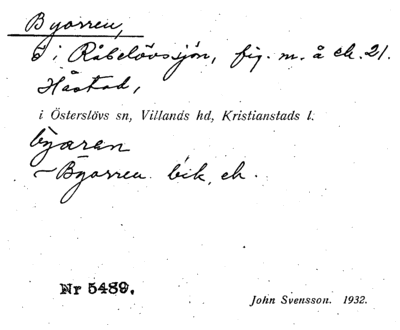 Byorren,
ö i Råbelövssjön, fig. m. å ek. 21.
Håstad,
i Österslövs sn, Villands hd, Kristianstads l.
byaran
~ Byorren bik. ek.
Nr 5489.
John Svensson. 1932.